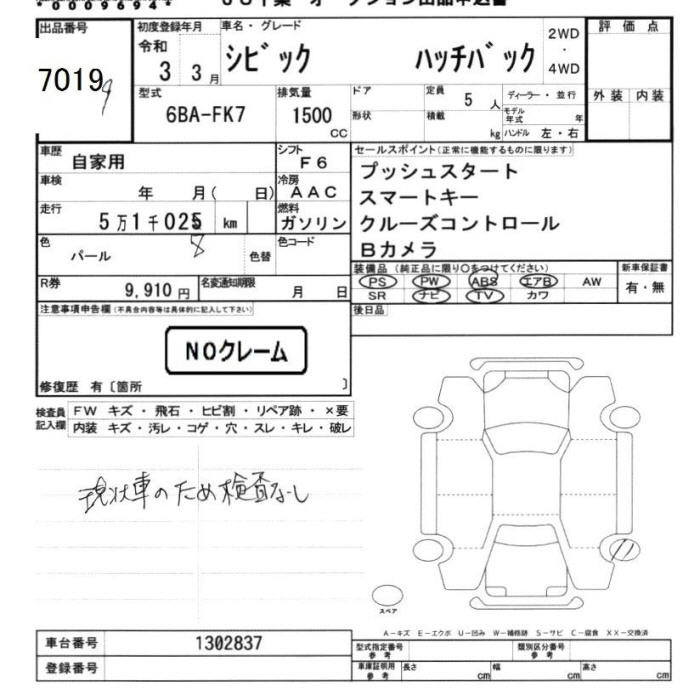 *00096944*
出品申込書
出品番号
70199
初度登録年月
令和
3 3月
車名・グレード
シビック ハッチバック
2WD
・
4WD
評価点
型式
6BA-FK7
排気量
1500
CC
ドア
形状
定員
5 人
積載
kg
ディーラー・並行
モデル
年式 年
ハンドル 左・右
外装 内装
車歴
自家用
シフト
F6
車検
年 月( 日)
冷房
AAC
走行
5万1千025 km
8
燃料
ガソリン
色
パール
色替
色コード
R券
9,910円
名変通知期限
月 日
セールスポイント(正常に機能するものに限ります)
プッシュスタート
スマートキー
クルーズコントロール
Bカメラ
装備品(純正品に限り〇をつけてください)
PS PW ABS エアB AW
SR ナビ TV カワ
新車保証書
有・無
後日品
注意事項申告欄(不具合内容等は具体的に記入して下さい)
NOクレーム
修復歴 有〔箇所 〕
検査員
記入欄
FW キズ・飛石・ヒビ割・リペア跡・×要
内装 キズ・汚レ・コゲ・穴・スレ・キレ・破レ
現状車のため検査なし
スペア
A-キズ E-エクボ U-凹み W-補修跡 S-サビ C-腐食 XX-交換済
車台番号
1302837
登録番号
型式指定番号
参考
類別区分番号
参考
車庫証明用
参考
長さ cm
幅 cm
高さ cm